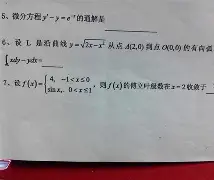 5、微分方程 y' - y = e⁻ˣ 的通解是
6、设 L 是沿曲线 y = √(2x - x²) 从点 A(2,0) 到点 O(0,0) 的有向弧
∫ xdy - ydx =
7、设 f(x) = { 4, -1 < x ≤ 0; sin x, 0 < x ≤ 1, 则 f(x) 的傅立叶级数在 x = 2 收敛于